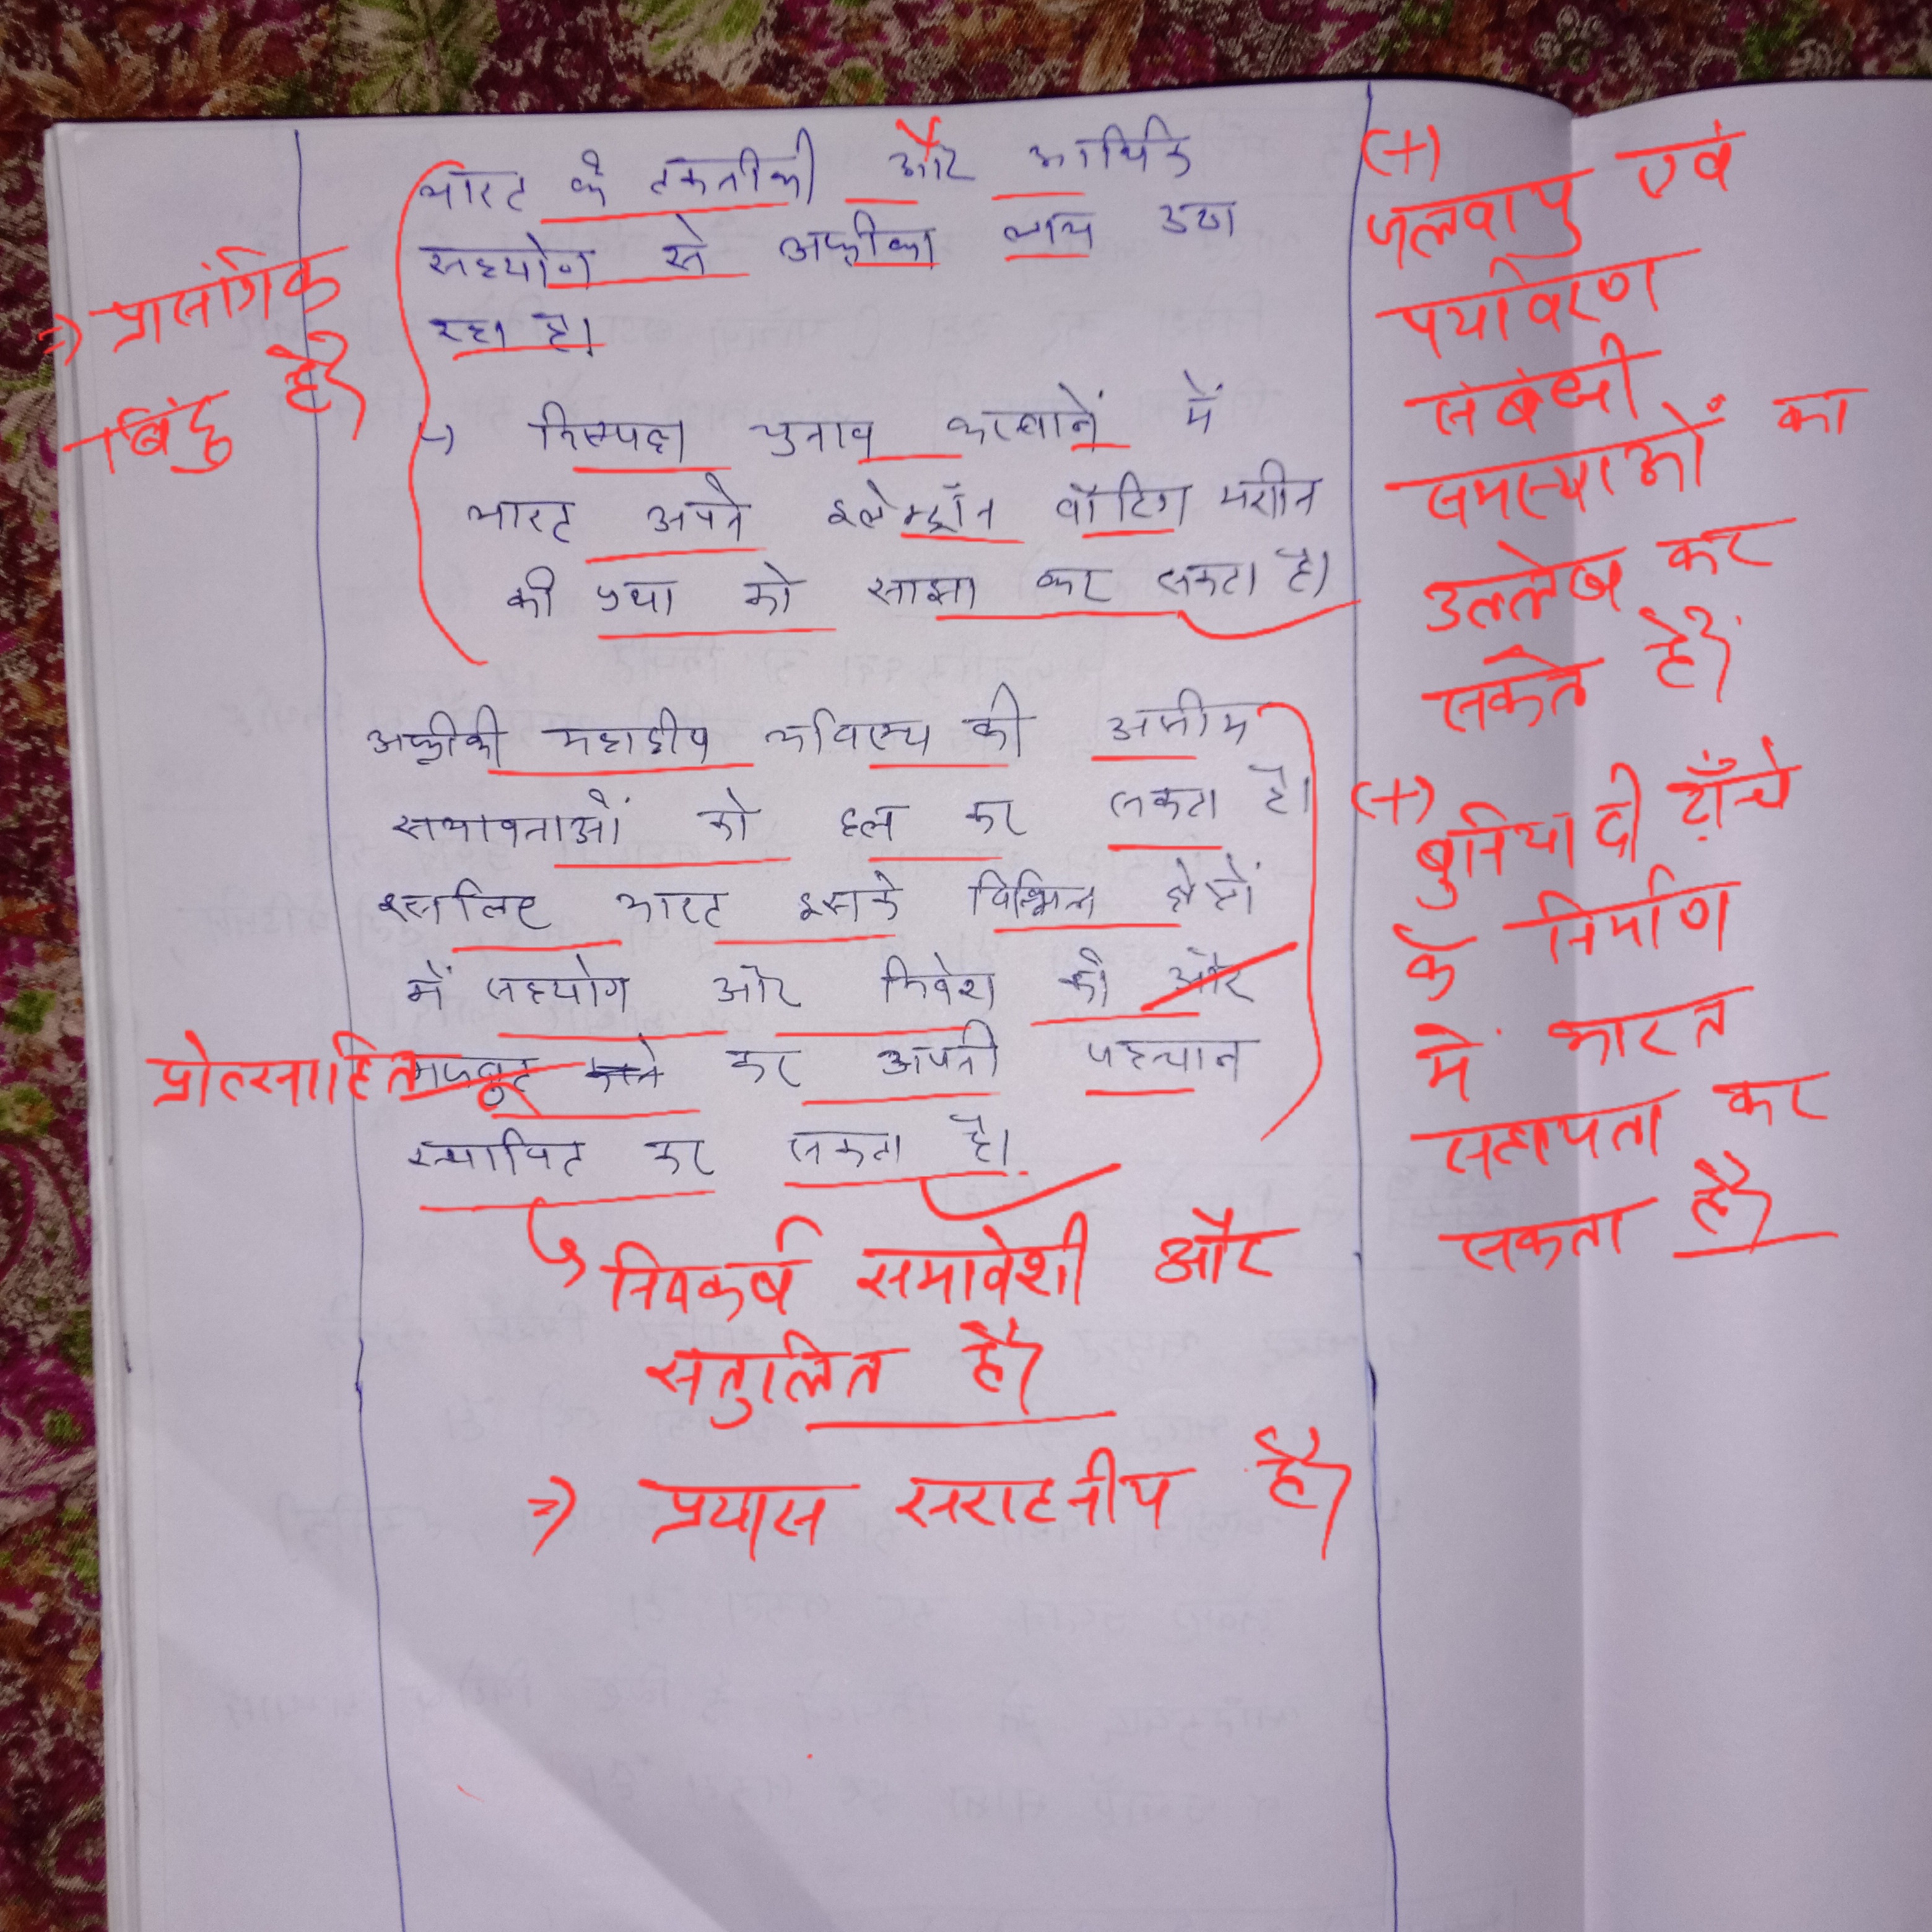 भारत के तकनीकी और आर्थिक
सहयोग से अफ्रीका लाभ उठा
रहा है।
=> प्रासंगिक
बिंदु है।
↳ निस्पक्ष चुनाव करवाने में
भारत अपने इलेक्ट्रॉन वोटिंग मशीन
की प्रथा को साझा कर सकता है।
अफ्रीकी महाद्वीप भविष्य की असीम
सभावनाओं को हल कर सकता है।
इसलिए भारत इसके विभिन्न क्षेत्रों
में सहयोग और निवेश को और
प्रोत्साहित मजबूत करने कर अपनी पहचान
स्थापित कर सकता है।
↳ निष्कर्ष समावेशी और
सतुलित है।
=> प्रयास सराहनीय है।
(+)
जलवायु एवं
पर्यावरण
संबंधी
समस्याओं का
उल्लेख कर
सकते हैं।
(+)
बुनियादी ढाँचे
के निर्माण
में भारत
सहायता कर
सकता है।